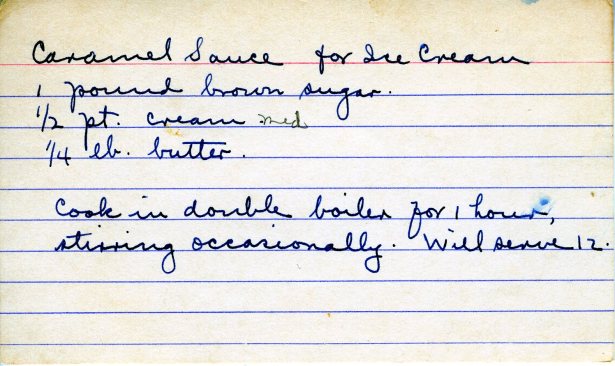 Caramel Sauce for Ice Cream
1 pound brown sugar.
1/2 pt. cream med
1/4 lb. butter.
Cook in double boiler for 1 hour,
stirring occasionally. Will serve 12.